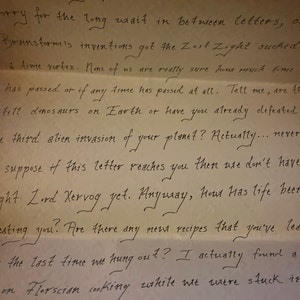 orry for the long wait in between letters, o
Brainstorm's inventions got the Lost Light sucked
a time vortex. None of us are really sure how much time
has passed or if any time has passed at all. Tell me, are th
still dinosaurs on Earth or have you already defeated
e third alien invasion of your planet? Actually... never
suppose if this letter reaches you then we don't have
ght Lord Nervog yet. Anyway, how has life been
eating you? Are there any new recipes that you've lea
the last time we hung out? I actually found a
on Florscian cooking while we were stuck in